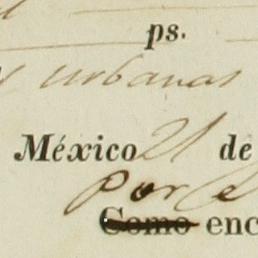 ps.
urbanas
México 21 de
Por el
Como enc